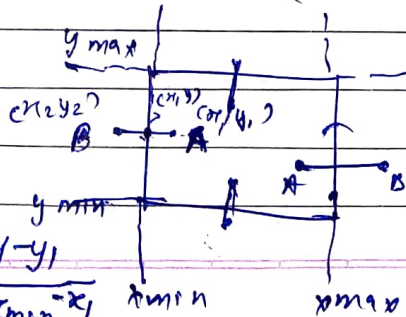 y max
(x,y)
(x2 y2) (x1 y1)
B A
A B
y min
y - y1
xmin - x1
xmin xmax